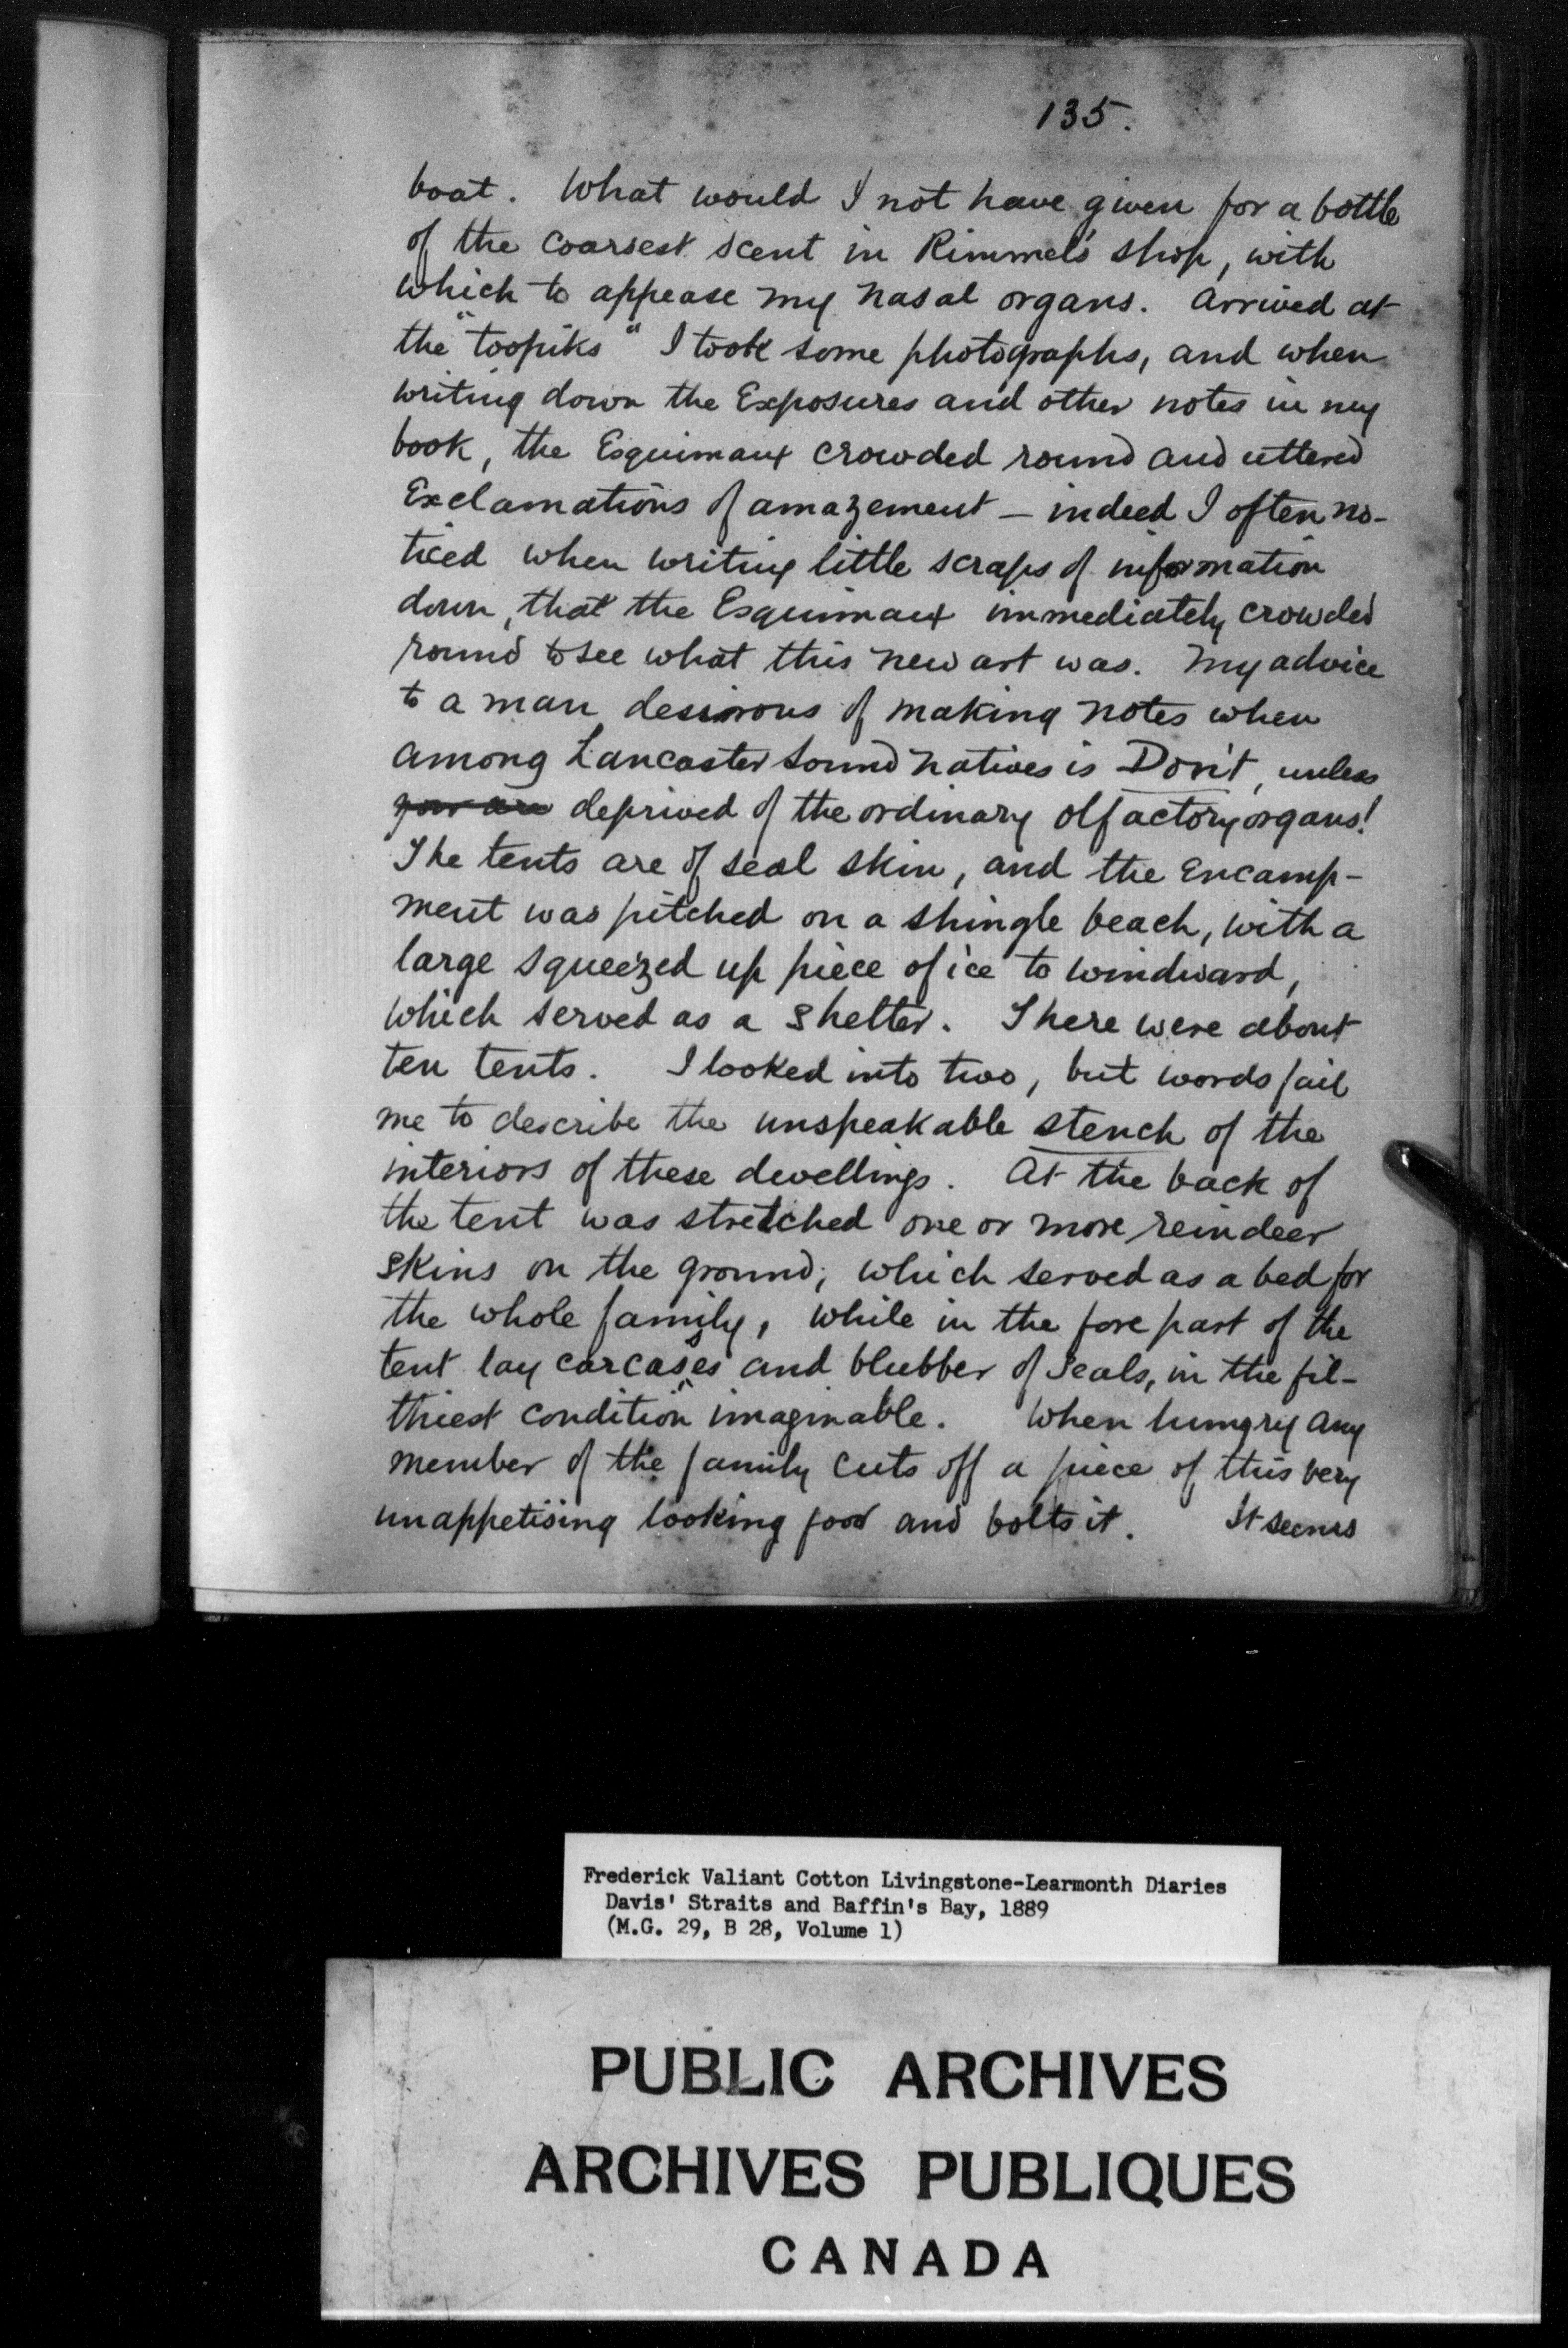 135.
boat. What would I not have given for a bottle
of the coarsest scent in Rimmel's shop, with
which to appease my nasal organs. Arrived at
the "toopiks" I took some photographs, and when
writing down the Exposures and other notes in my
book, the Esquimaux crowded round and uttered
Exclamations of amazement — indeed I often no-
ticed when writing little scraps of information
down, that the Esquimaux immediately crowded
round to see what this new art was. My advice
to a man desirous of making notes when
among Lancaster Sound natives is Don't, unless
you are deprived of the ordinary olfactory organs!
The tents are of seal skin, and the Encamp-
ment was pitched on a shingle beach, with a
large squeezed up piece of ice to windward,
which served as a shelter. There were about
ten tents. I looked into two, but words fail
me to describe the unspeakable stench of the
interiors of these dwellings. At the back of
the tent was stretched one or more reindeer
skins on the ground, which served as a bed for
the whole family, while in the fore part of the
tent lay carcasses and blubber of seals, in the fil-
thiest condition imaginable. When hungry any
member of the family cuts off a piece of this very
unappetising looking food and bolts it. It seems
Frederick Valiant Cotton Livingstone-Learmonth Diaries
Davis' Straits and Baffin's Bay, 1889
(M.G. 29, B 28, Volume 1)
PUBLIC ARCHIVES
ARCHIVES PUBLIQUES
CANADA